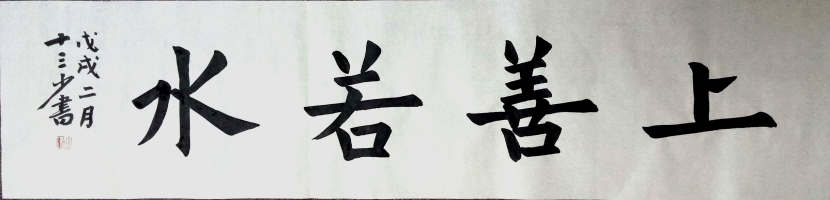 上善若水
戊戌二月
十三少書